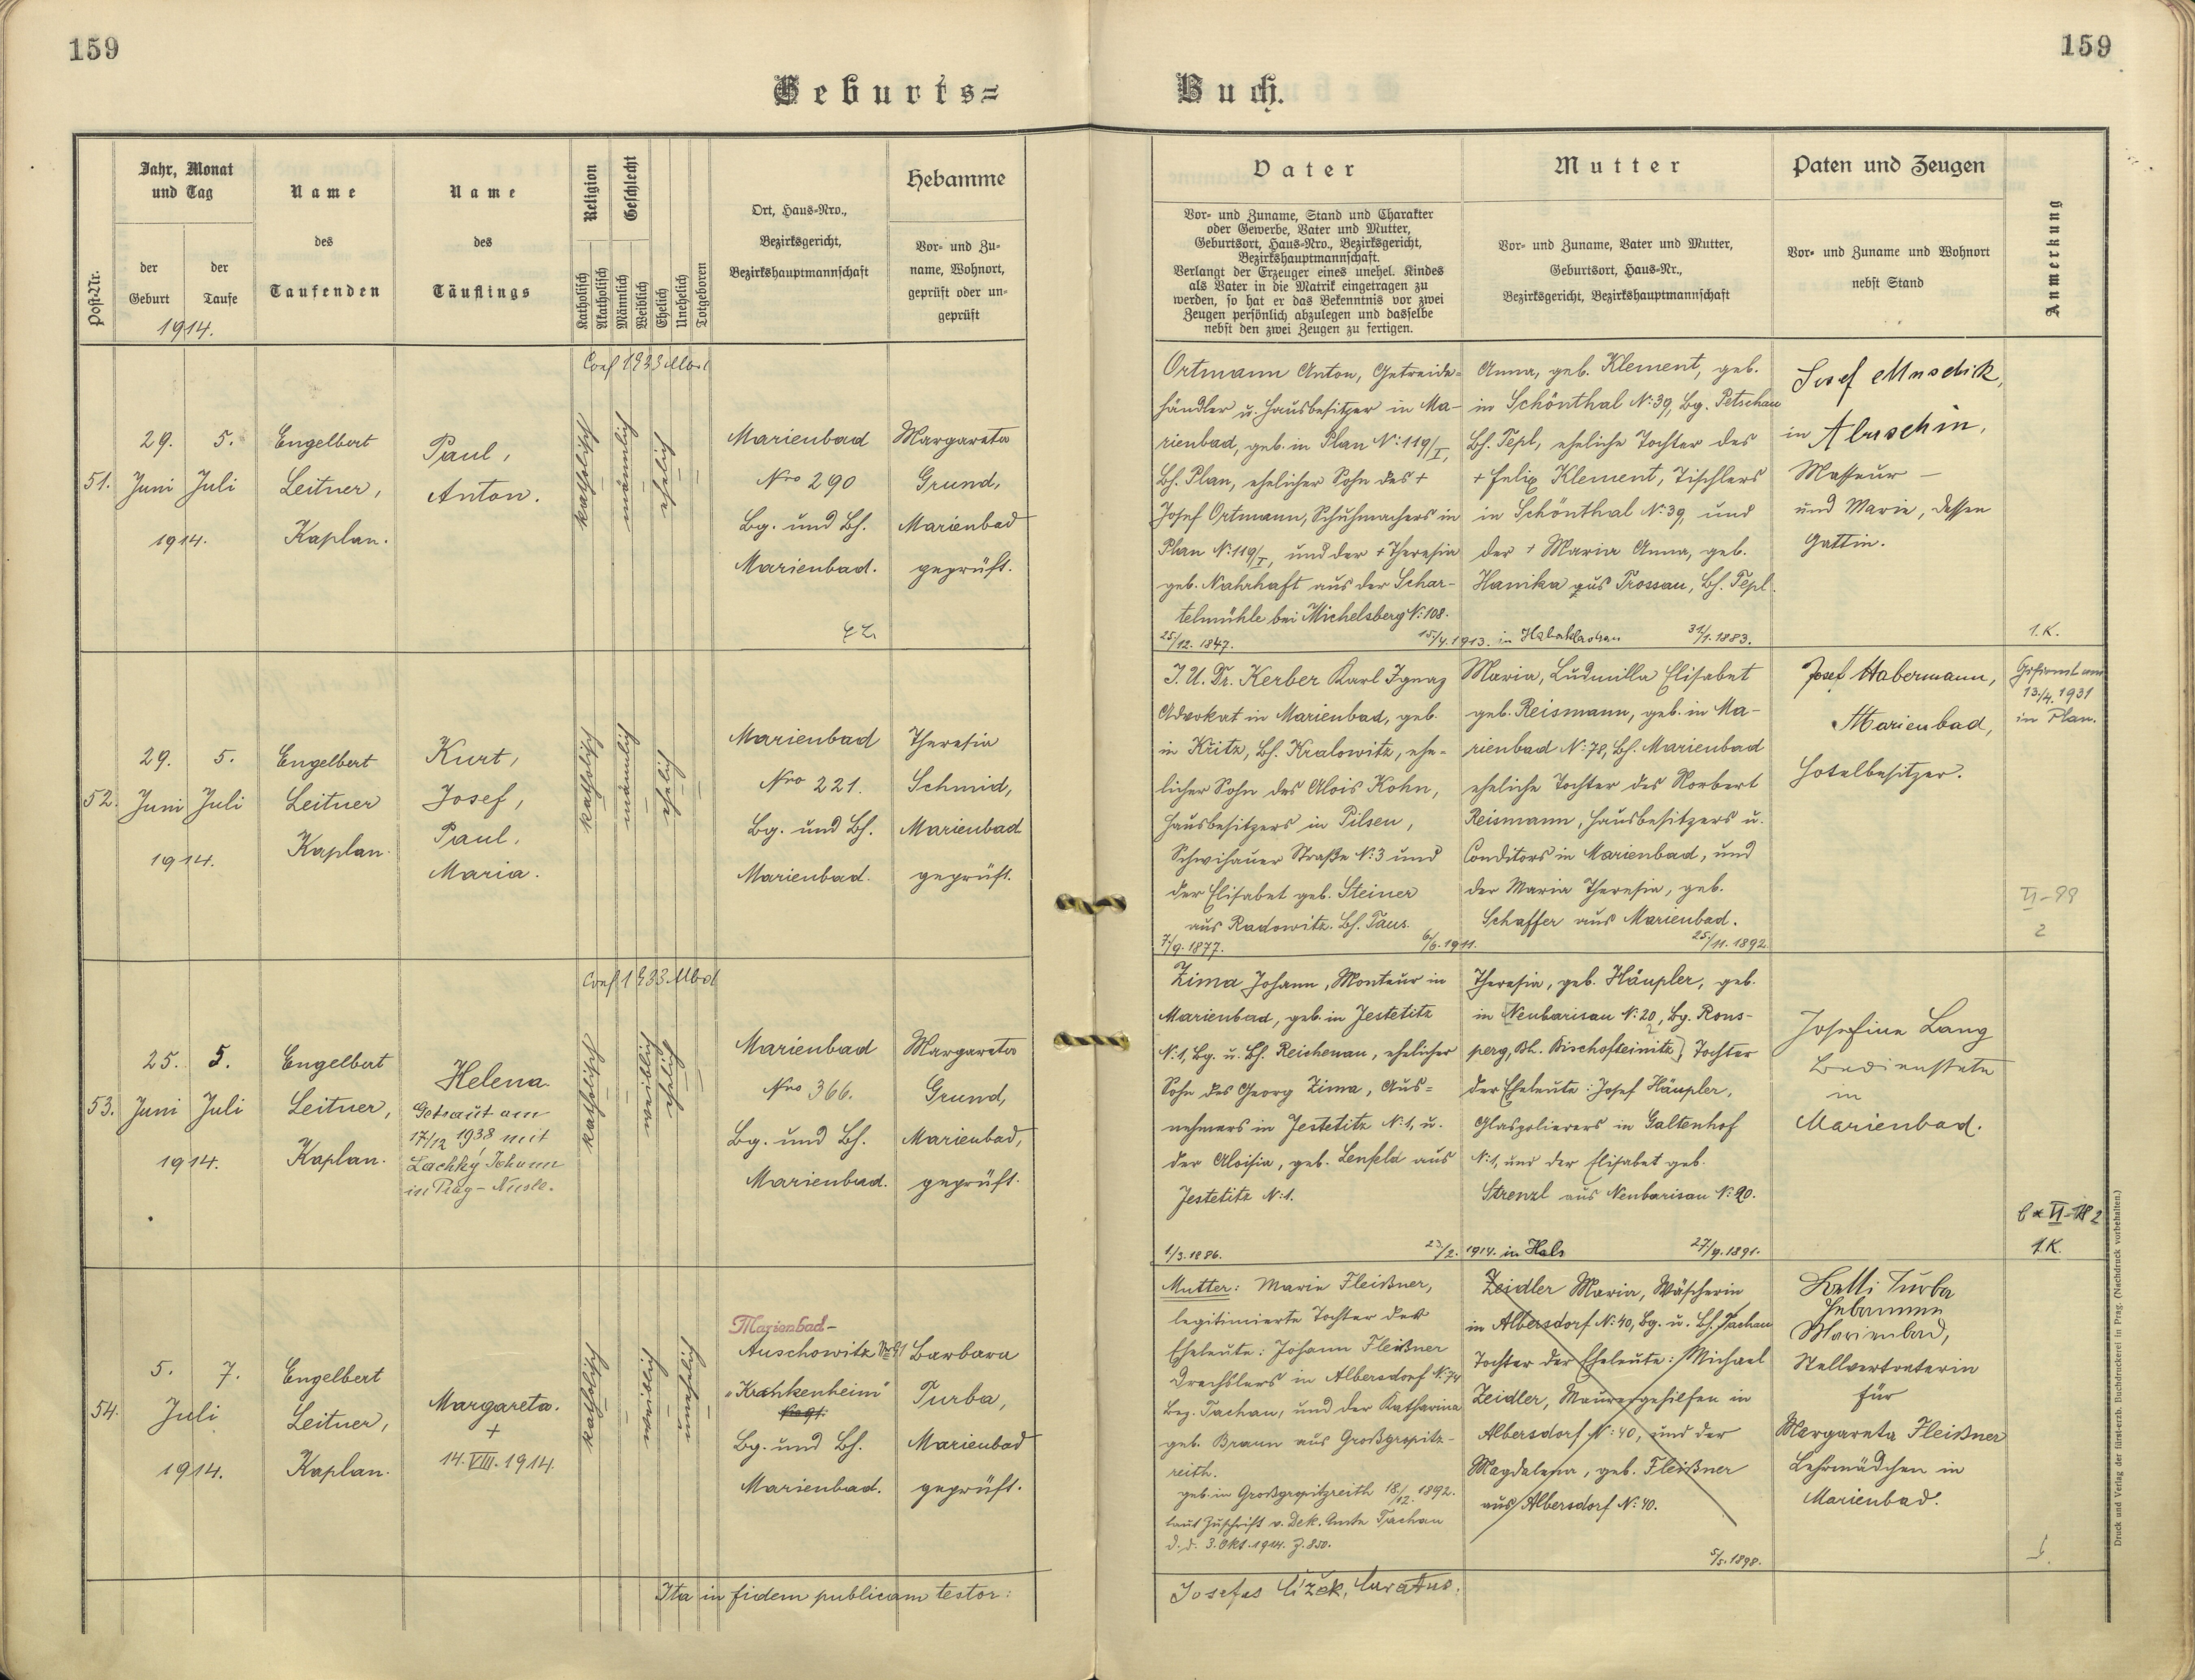 159
159
Geburts=
Buch.
Post-Nr.
Jahr, Monat
und Tag
der
Geburt
der
Taufe
1914.
Name
des
Taufenden
Name
des
Täuflings
Religion
Geschlecht
Katholisch
Akatholisch
Männlich
Weiblich
Ehelich
Unehelich
Totgeboren
Ort, Haus-Nro.,
Bezirksgericht,
Bezirkshauptmannschaft
Hebamme
Vor- und Zu-
name, Wohnort,
geprüft oder un-
geprüft
Vater
Vor- und Zuname, Stand und Charakter
oder Gewerbe, Vater und Mutter,
Geburtsort, Haus-Nro., Bezirksgericht,
Bezirkshauptmannschaft.
Verlangt der Erzeuger eines unehel. Kindes
als Vater in die Matrik eingetragen zu
werden, so hat er das Bekenntnis vor zwei
Zeugen persönlich abzulegen und dasselbe
nebst den zwei Zeugen zu fertigen.
Mutter
Vor- und Zuname, Vater und Mutter,
Geburtsort, Haus-Nr.,
Bezirksgericht, Bezirkshauptmannschaft
Paten und Zeugen
Vor- und Zuname und Wohnort
nebst Stand
Anmerkung
51.
29.
Juni
5.
Juli
1914.
Engelbert
Leitner,
Kaplan.
Paul,
Anton.
Conf 1933
katholisch
männlich
ehelich
Marienbad
Nro 290
Bg. und Bh.
Marienbad.
Margareta
Grund,
Marienbad
geprüft.
Ortmann Anton, Getreide=
händler u. Hausbesitzer in Ma-
rienbad, geb. in Plan N: 119/I,
Bh. Plan, ehelicher Sohn des +
Josef Ortmann, Schuhmachers in
Plan N: 119/I, und der + Theresia
geb. Nahrhaft aus der Schar-
telmühle bei Michelsberg N: 108.
25/12. 1847.
15/4. 1913. in
Anna, geb. Klement, geb.
in Schönthal N: 39, Bg. Petschau
Bh. Tepl, eheliche Tochter des
+ Felix Klement, Tischlers
in Schönthal N: 39, und
der + Maria Anna, geb.
Hanika aus Prossau, Bh. Tepl.
31/1. 1883.
Josef
in Abaschin,
Masseur –
und Marie, dessen
Gattin.
1. K.
52.
29.
Juni
5.
Juli
1914.
Engelbert
Leitner
Kaplan.
Kurt,
Josef,
Paul,
Maria.
katholisch
männlich
ehelich
Marienbad
Nro 221.
Bg. und Bh.
Marienbad.
Theresia
Schmid,
Marienbad
geprüft.
J. U. Dr. Kerber Karl Ignaz
Advokat in Marienbad, geb.
in Křitz, Bh. Kralowitz, ehe-
licher Sohn des Alois Kohn,
Hausbesitzers in Pilsen,
Schwihauer Straße N: 3 und
der Elisabet geb. Steiner
aus Radowitz. Bh. Taus.
7/9. 1877.
6/6. 1911.
Maria, Ludmilla Elisabet
geb. Reismann, geb. in Ma-
rienbad N: 78, Bh. Marienbad
eheliche Tochter des Norbert
Reismann, Hausbesitzers u.
Conditors in Marienbad, und
der Maria Theresia, geb.
Schaffer aus Marienbad.
25/11. 1892.
Josef Habermann,
Marienbad,
Hotelbesitzer.
Gefirmt am
13./4. 1931
in Plan.
VI-99
2
53.
25.
Juni
5.
Juli
1914.
Engelbert
Leitner,
Kaplan.
Helena.
Getraut am
17/12 1938 mit
Lachký Johann
in Prag-Nusle.
Conf 1933
katholisch
weiblich
ehelich
Marienbad
Nro 366.
Bg. und Bh.
Marienbad.
Margareta
Grund,
Marienbad,
geprüft.
Zima Johann, Monteur in
Marienbad, geb. in Jestetitz
N: 1, Bg. u. Bh. Reichenau, ehelicher
Sohn des Georg Zima, Aus=
nehmers in Jestetitz N: 1, u.
der Aloisia, geb. Lenfeld aus
Jestetitz N: 1.
1/3. 1886.
23/2. 1914. in Hals
Theresia, geb. Häupler, geb.
in Neubarisau N: 20, Bg. Rons-
perg, Bh. Bischofteinitz, Tochter
der Eheleute: Josef Häupler,
Glaspolierers in Galtenhof
N: 1, und der Elisabet geb.
Strenzl aus Neubarisau N: 20.
27/9. 1891.
Josefine Lang
Bedienstete
in
Marienbad.
1. K.
54.
5.
7.
Juli
1914.
Engelbert
Leitner,
Kaplan.
Margareta.
+
14. VIII. 1914.
katholisch
weiblich
unehelich
Marienbad-
Auschowitz Nr 91
"Krankenheim"
Bg. und Bh.
Marienbad.
Barbara
Turba,
Marienbad
geprüft.
Mutter: Marie Fleißner,
legitimierte Tochter der
Eheleute: Johann Fleißner
Drechslers in Albersdorf N: 74
Bez. Tachau, und der Katharina
geb. Braun aus Großgropitz-
reith.
geb. in Großgropitzreith 18/12. 1892.
laut Zuschrift v. Dek. Amte Tachau
d. d. 3. Okt. 1914. Z. 850.
Zeidler Maria, Wäscherin
in Albersdorf N: 40, Bg. u. Bh. Tachau
Tochter der Eheleute: Michael
Zeidler, Maurergehilfen in
Albersdorf N: 40, und der
Magdalena, geb. Fleißner
aus Albersdorf N: 40.
5/5. 1898.
Betti Turba
Hebamme
Marienbad,
Stellvertreterin
für
Margareta Fleißner
Lehrmädchen in
Marienbad.
Ita in fidem publicam testor:
Josefus Čížek, Curatus.
Druck und Verlag der fürsterzb. Buchdruckerei in Prag. (Nachdruck vorbehalten.)